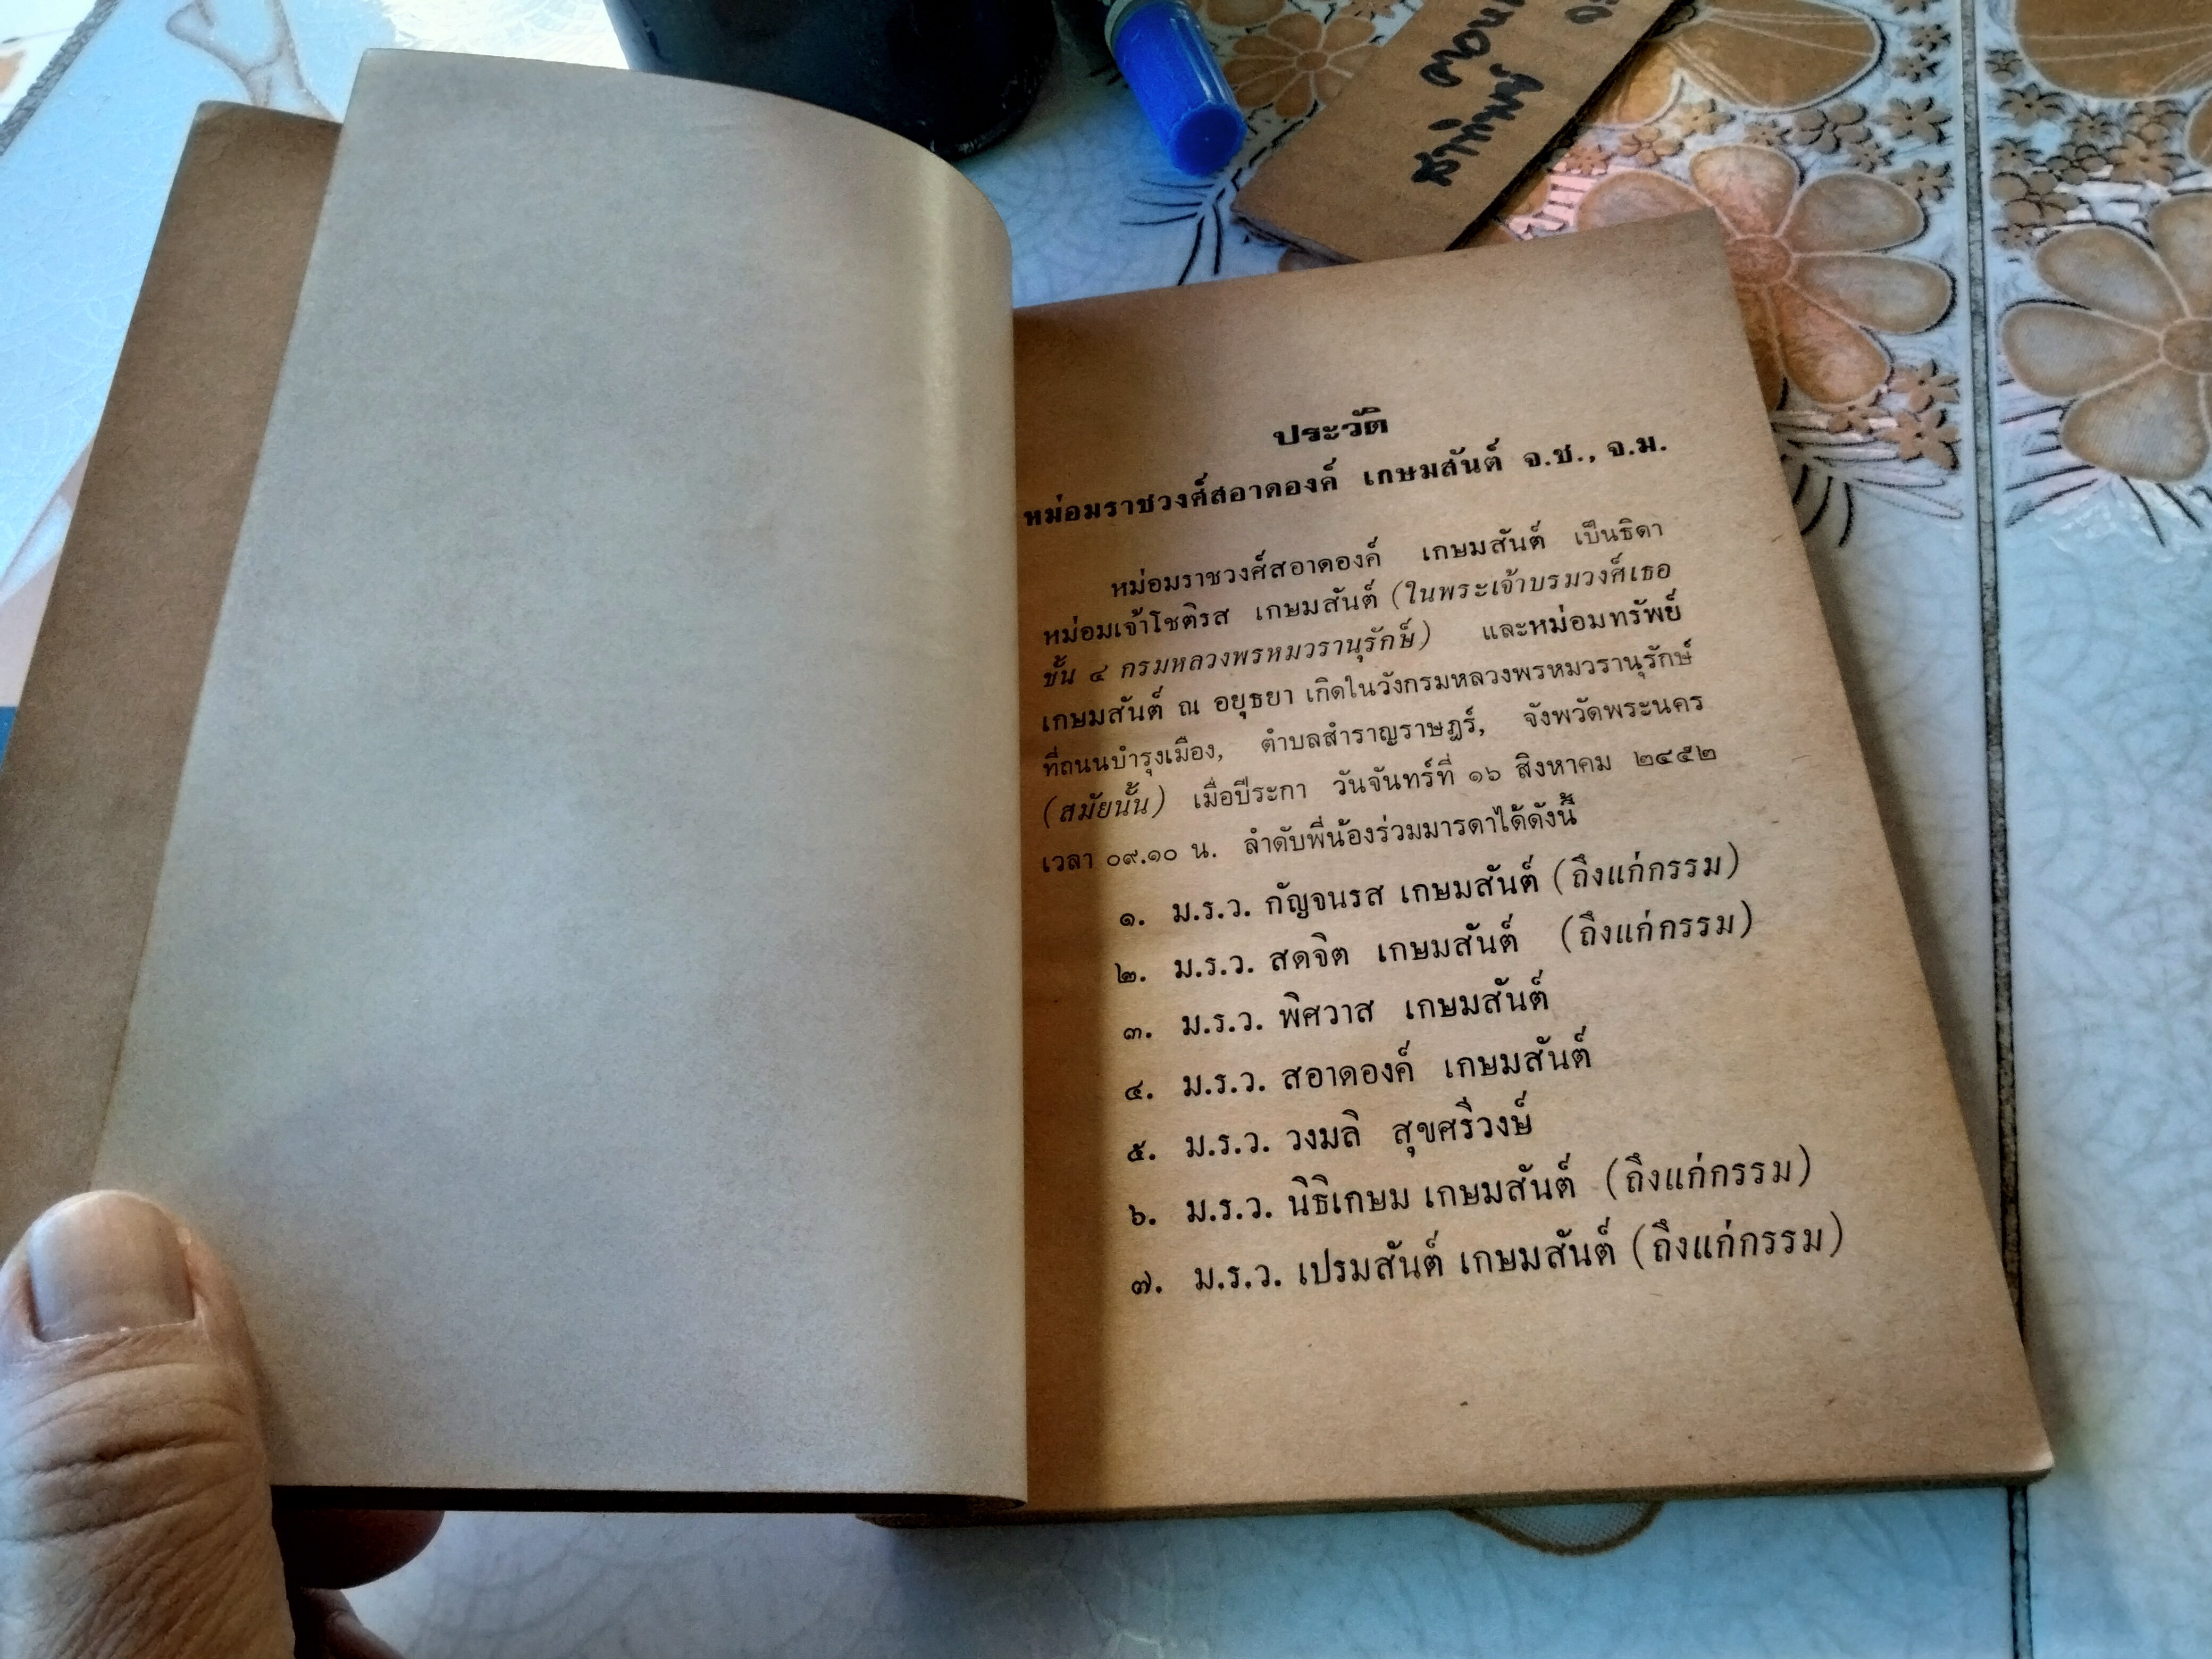 ประวัติ
หม่อมราชวงศ์สอาดองค์ เกษมสันต์ จ.ช., จ.ม.
หม่อมราชวงศ์สอาดองค์ เกษมสันต์ เป็นธิดา
หม่อมเจ้าโชติรส เกษมสันต์ (ในพระเจ้าบรมวงศ์เธอ
ชั้น ๔ กรมหลวงพรหมวรานุรักษ์) และหม่อมทรัพย์
เกษมสันต์ ณ อยุธยา เกิดในวังกรมหลวงพรหมวรานุรักษ์
ที่ถนนบำรุงเมือง, ตำบลสำราญราษฎร์, จังหวัดพระนคร
(สมัยนั้น) เมื่อปีระกา วันจันทร์ที่ ๑๖ สิงหาคม ๒๔๕๒
เวลา ๐๙.๑๐ น. ลำดับพี่น้องร่วมมารดาได้ดังนี้
๑. ม.ร.ว. กัญจนรส เกษมสันต์ (ถึงแก่กรรม)
๒. ม.ร.ว. สดจิต เกษมสันต์ (ถึงแก่กรรม)
๓. ม.ร.ว. พิศวาส เกษมสันต์
๔. ม.ร.ว. สอาดองค์ เกษมสันต์
๕. ม.ร.ว. วงมลิ สุขศรีวงษ์
๖. ม.ร.ว. นิธิเกษม เกษมสันต์ (ถึงแก่กรรม)
๗. ม.ร.ว. เปรมสันต์ เกษมสันต์ (ถึงแก่กรรม)